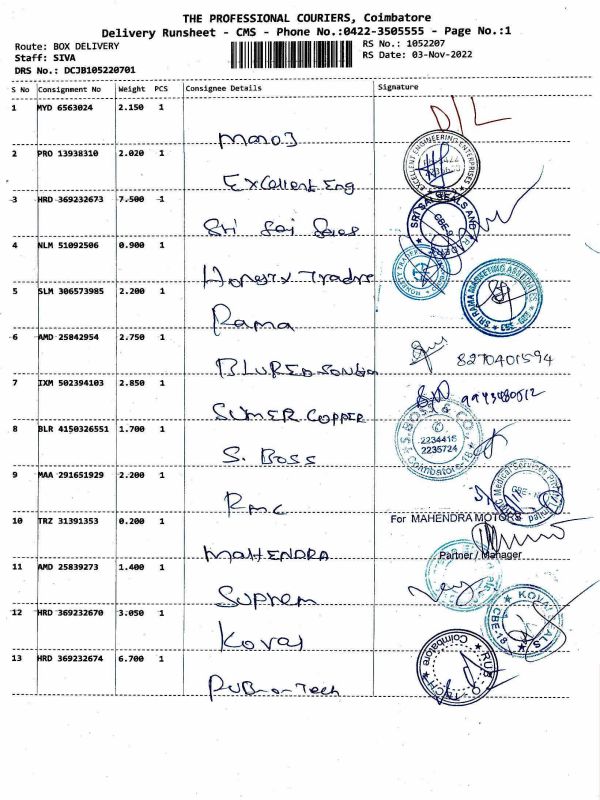 THE PROFESSIONAL COURIERS, Coimbatore
Delivery Runsheet - CMS - Phone No.:0422-3505555 - Page No.:1
Route: BOX DELIVERY
RS No.: 1052207
Staff: SIVA
RS Date: 03-Nov-2022
DRS No.: DCJB105220701
S No Consignment No Weight PCS Consignee Details Signature
1 MYD 6563024 2.150 1
D/L
Manoj
2 PRO 13938310 2.020 1
EXCELLENT ENGINEERING ENTERPRISES
Excellent Eng
3 HRD 369232673 7.500 1
SRI SAI SEALS AND
Sri Sai Seals
4 NLM 51092506 0.900 1
Honesty Traders
5 SLM 306573985 2.200 1
SRI RAMA MARKETING ASSOCIATES
Rama
6 AMD 25842954 2.750 1
8270401594
7 IXM 502394103 2.850 1
SUMER COPPER
8 BLR 4150326551 1.700 1
S. BOSS & CO.
2234415
2235724
Coimbatore-18
S. Boss
9 MAA 291651929 2.200 1
RMC
10 TRZ 31391353 0.200 1
For MAHENDRA MOTORS
MAHENDRA
Partner / Manager
11 AMD 25839273 1.400 1
Suprem
12 HRD 369232670 3.050 1
KOVAI SEALS
CBE-18
Kovai
13 HRD 369232674 6.700 1
RUB-O-TECH
Coimbatore
Rub-o-Tech